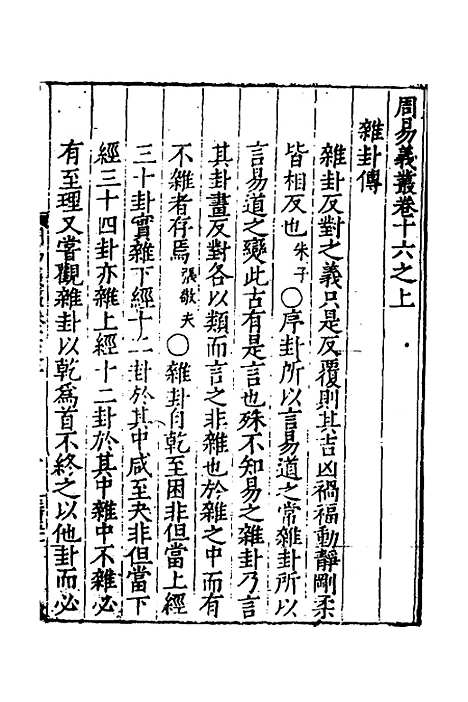 周易義叢卷十六之上
雜卦傳
雜卦反對之義只是反覆則其吉凶禍福動靜剛柔
皆相反也朱子○序卦所以言易道之常雜卦所以
言易道之變此古有是言也殊不知易之雜卦乃言
其卦畫反對各以類而言之非雜也於雜之中而有
不雜者存焉張敬夫○雜卦自乾至困非但當上經
三十卦實雜下經十二卦於其中咸至夬非但當下
經三十四卦亦雜上經十二卦於其中雜中不雜必
有至理又嘗觀雜卦以乾爲首不終之以他卦而必